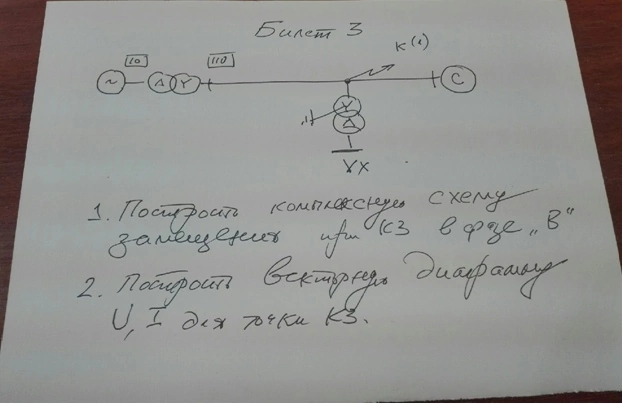 Билет 3
10
110
К(1)
~
Δ
Y
С
Y
Δ
XX
1. Построить комплексную схему
замещения при КЗ в фазе „В"
2. Построить векторную диаграмму
U, I для точки КЗ.